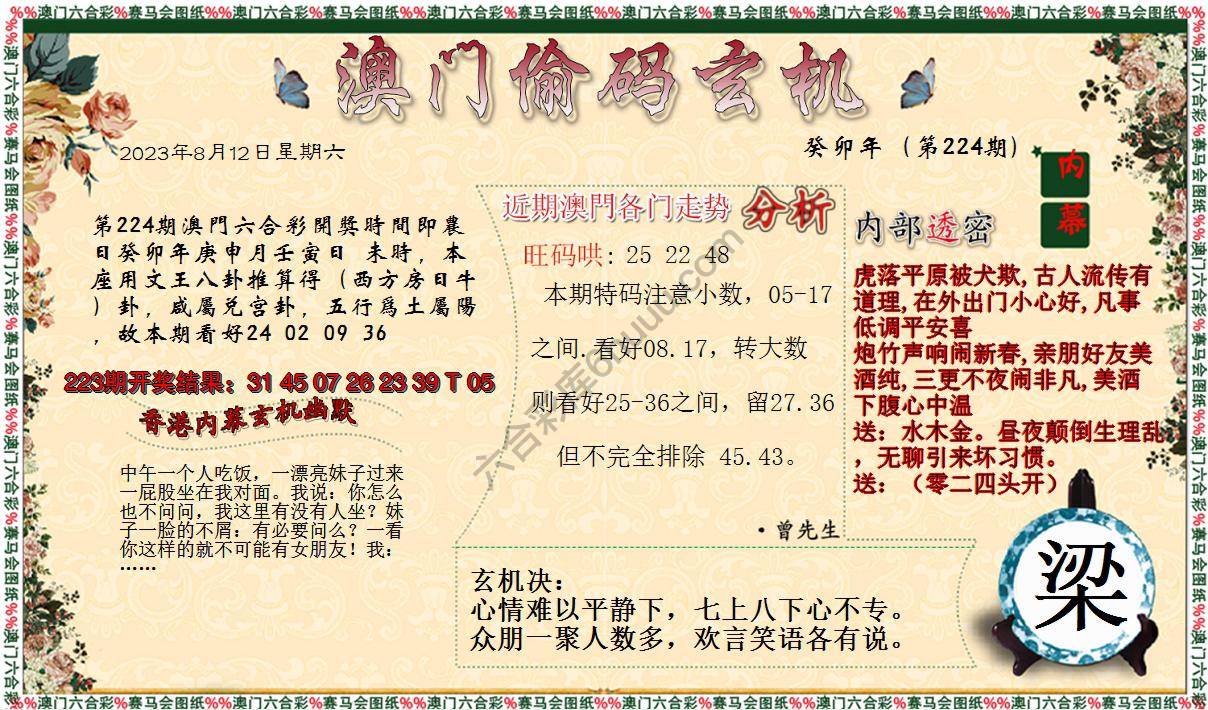 %%澳门六合彩%赛马会图纸%%澳门六合彩%赛马会图纸%%澳门六合彩%赛马会图纸%%澳门六合彩%赛马会图纸%%澳门六合彩%赛马会图纸%%澳门六合彩%赛马会图纸%%
澳门偷码玄机
2023年8月12日星期六
癸卯年（第224期）
内
幕
第224期澳門六合彩開獎時間即農
日癸卯年庚申月壬寅日 未時，本
座用文王八卦推算得（西方房日牛
）卦，咸屬兌宫卦，五行爲土屬陽
，故本期看好24 02 09 36
223期开奖结果：31 45 07 26 23 39 T 05
香港内幕玄机幽默
中午一个人吃饭，一漂亮妹子过来
一屁股坐在我对面。我说：你怎么
也不问问，我这里有没有人坐？妹
子一脸的不屑：有必要问么？一看
你这样的就不可能有女朋友！我：
……
近期澳門各门走势 分析
旺码哄: 25 22 48
本期特码注意小数，05-17
之间.看好08.17，转大数
则看好25-36之间，留27.36
但不完全排除 45.43。
·曾先生
内部透密
虎落平原被犬欺,古人流传有
道理,在外出门小心好,凡事
低调平安喜
炮竹声响闹新春,亲朋好友美
酒纯,三更不夜闹非凡,美酒
下腹心中温
送：水木金。昼夜颠倒生理乱
，无聊引来坏习惯。
送：（零二四头开）
玄机决：
心情难以平静下，七上八下心不专。
众朋一聚人数多，欢言笑语各有说。
梁
%%澳门六合彩%赛马会图纸%%澳门六合彩%赛马会图纸%%澳门六合彩%赛马会图纸%%澳门六合彩%赛马会图纸%%澳门六合彩%赛马会图纸%%澳门六合彩%赛马会图纸%%